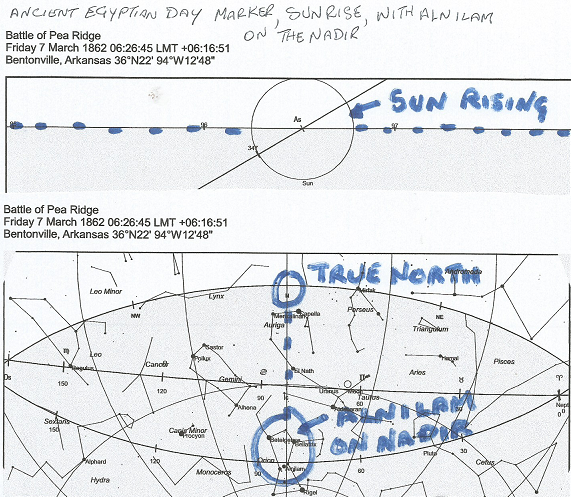 ANCIENT EGYPTIAN DAY MARKER, SUNRISE, WITH ALNILAM
ON THE NADIR
Battle of Pea Ridge
Friday 7 March 1862 06:26:45 LMT +06:16:51
Bentonville, Arkansas 36°N22' 94°W12'48"
SUN RISING
As
96
97
34°
Sun
Battle of Pea Ridge
Friday 7 March 1862 06:26:45 LMT +06:16:51
Bentonville, Arkansas 36°N22' 94°W12'48"
TRUE NORTH
Andromeda
Leo Minor
Lynx
N
Mirfak
NW
Menkalinan
Capella
Perseus
NE
Auriga
Triangulum
Leo
Castor
Pollux
Cancer
Hamal
Pisces
Ds
Regulus
El Nath
Aries
150
120
Gemini
90
Uranus
Moon
Taurus
60
Nept
0
Alhena
Aldebaran
30
ALNILAM
ON NADIR
Sextans
150
Canis Minor
Procyon
Betelgeuse
Bellatrix
Pluto
30
Alphard
120
Orion
90
Alnilam
60
Cetus
Hydra
Monoceros
Rigel